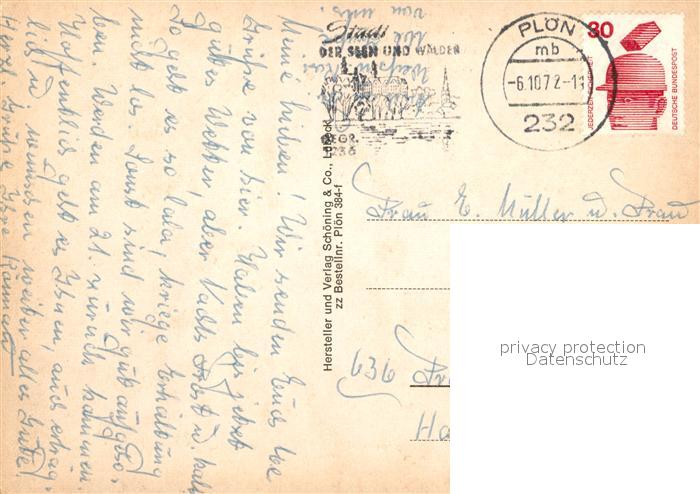 von uns.
Stadt
DER SEEN UND WÄLDER
GEGR.
1236
PLÖN
mb
-6.10.72-11
232
30
JEDERZEIT SICHERHEIT
DEUTSCHE BUNDESPOST
Meine Lieben! Wir senden Euch liebe
Grüße von hier. Haben bis jetzt
gutes Wetter, aber nachts Frost u. kalt.
So geht es so lala, kriege Erkältung
nicht los. Sonst sind wir gut aufgeho-
ben. Werden am 21. zurück kommen.
Hoffentlich geht es Ihnen, auch erträg-
lich u. wünschen weiter alles Gute!
Herzl. Grüße Ihre
Hersteller und Verlag Schöning & Co., Lübeck
zz Bestellnr. Plön 384-f
Frau E. Müller u. Frau
636
privacy protection
Datenschutz